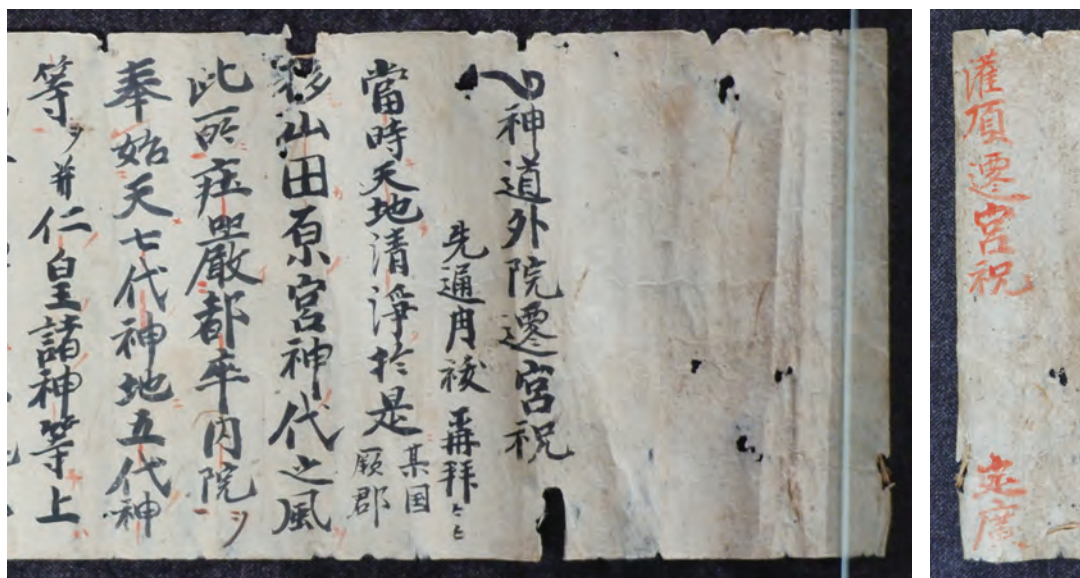 神道外院遷宮祝
先通用祓 再拝〻〻
當時天地清淨於是某国
厥郡
移山田原宮神代之風
此所荘嚴都卒内院ヲ
奉始天七代神地五代神
等ヲ并仁皇諸神等上
灌頂遷宮祝